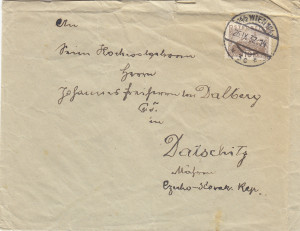 An
Seine Hochwohlgeboren
Herrn
Johannes Freiherrn von Dalberg
in
Datschitz
Mähren
Czecho-slovak. Rep.
WIEN